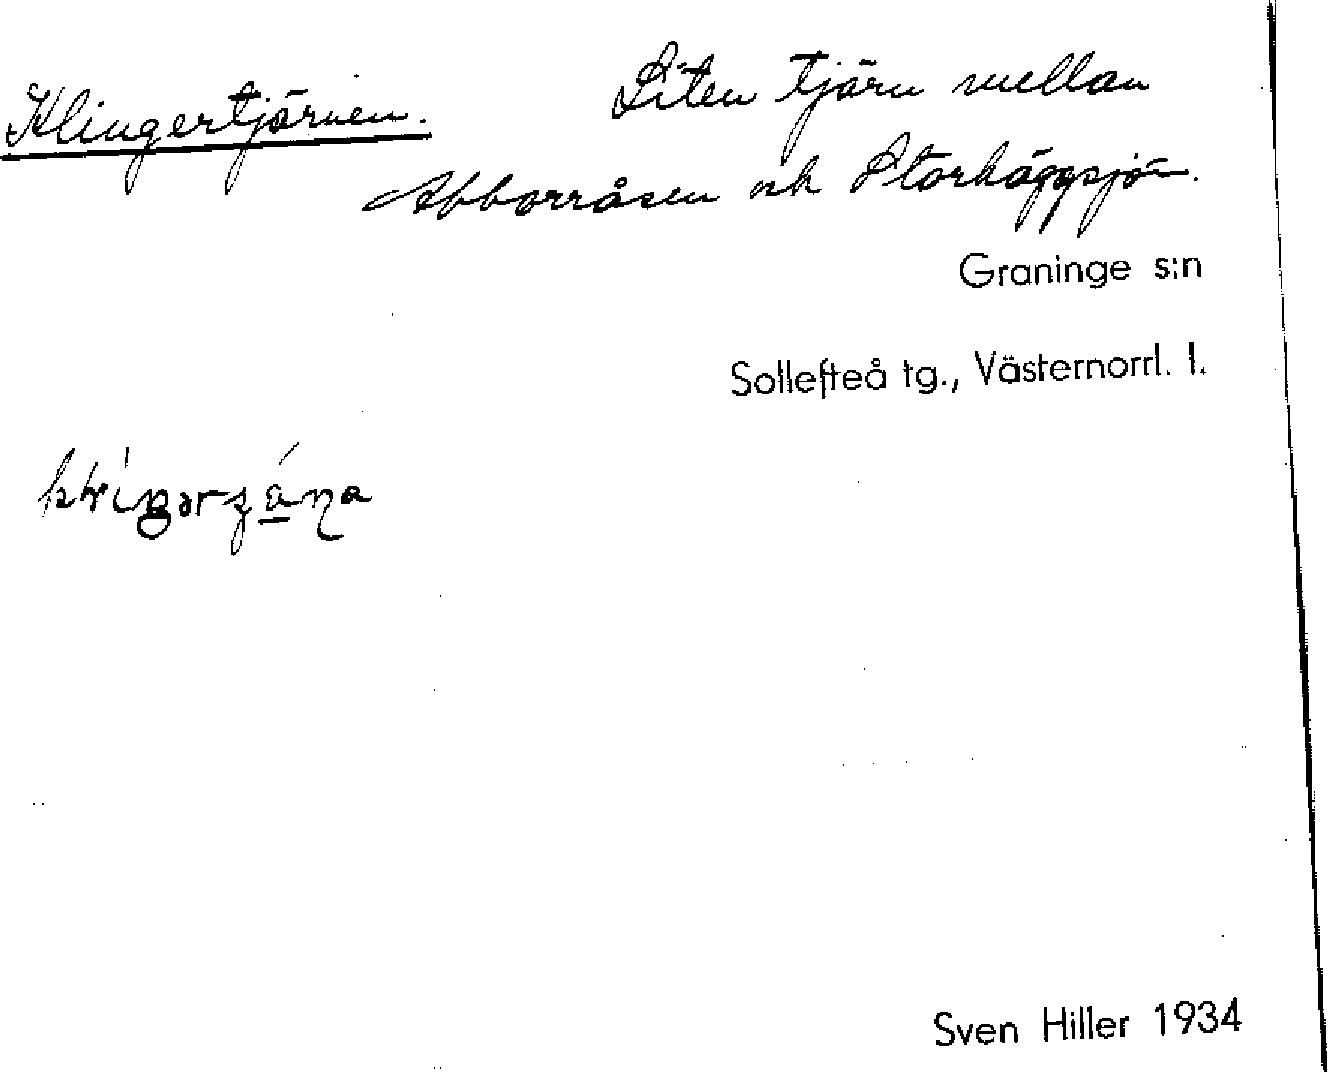 Klingertjärnen. Liten tjärn mellan
Abborråsen och Storhäggsjön.
Graninge s:n
Sollefteå tg., Västernorrl. l.
Sven Hiller 1934